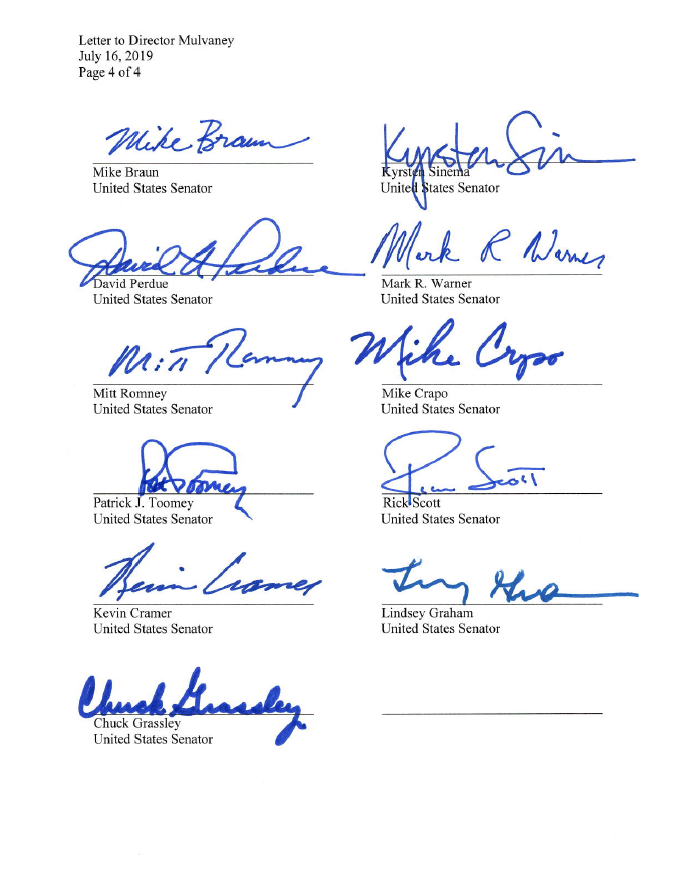 Letter to Director Mulvaney
July 16, 2019
Page 4 of 4
Mike Braun
Mike Braun
United States Senator
Kyrsten Sin
Kyrsten Sinema
United States Senator
David A Perdue
David Perdue
United States Senator
Mark R Warner
Mark R. Warner
United States Senator
Mitt Romney
Mitt Romney
United States Senator
Mike Crapo
Mike Crapo
United States Senator
Pat Toomey
Patrick J. Toomey
United States Senator
Rick Scott
Rick Scott
United States Senator
Kevin Cramer
Kevin Cramer
United States Senator
Lindsey Graham
United States Senator
Chuck Grassley
Chuck Grassley
United States Senator